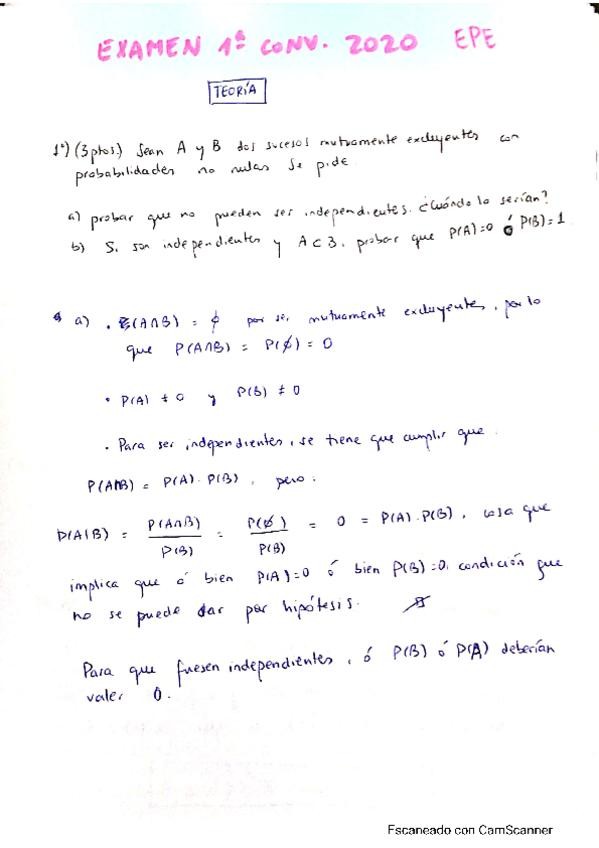 EXAMEN 1ª CONV. 2020 EPE
TEORÍA
1º) (3ptos.) Sean A y B dos sucesos mutuamente excluyentes con
probabilidades no nulas Se pide.
a) probar que no pueden ser independientes. ¿Cuándo lo serían?
b) Si son independientes y A ⊂ B, probar que P(A)=0 ó P(B)=1
a) . (A∩B) = ϕ por ser mutuamente excluyentes, por lo
que P(A∩B) = P(ϕ) = 0
• P(A) ≠ 0 y P(B) ≠ 0
. Para ser independientes, se tiene que cumplir que.
P(A∩B) = P(A) · P(B), pero:
P(A|B) = P(A∩B) / P(B) = P(ϕ) / P(B) = 0 = P(A) · P(B), cosa que
implica que ó bien P(A)=0 ó bien P(B)=0, condición que
no se puede dar por hipótesis.
Para que fuesen independientes, ó P(B) ó P(A) deberían
valer 0.
Escaneado con CamScanner